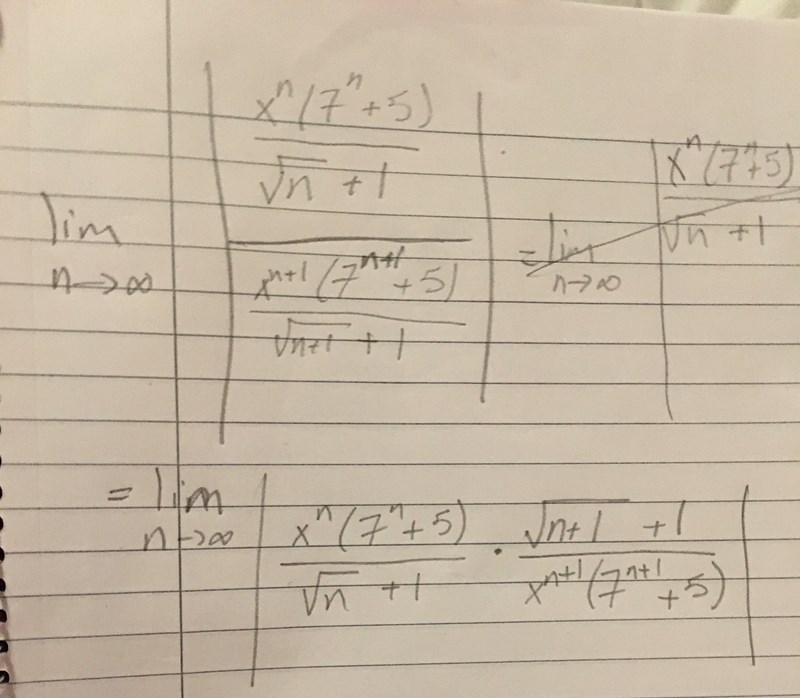 lim n→∞ | (x^n(7^n+5))/(√n +1) / (x^(n+1)(7^(n+1)+5))/(√(n+1) +1) | = lim n→∞ | x^n(7^n+5)/(√n +1)
= lim n→∞ | x^n(7^n+5)/(√n +1) · (√(n+1) +1)/(x^(n+1)(7^(n+1)+5)) |